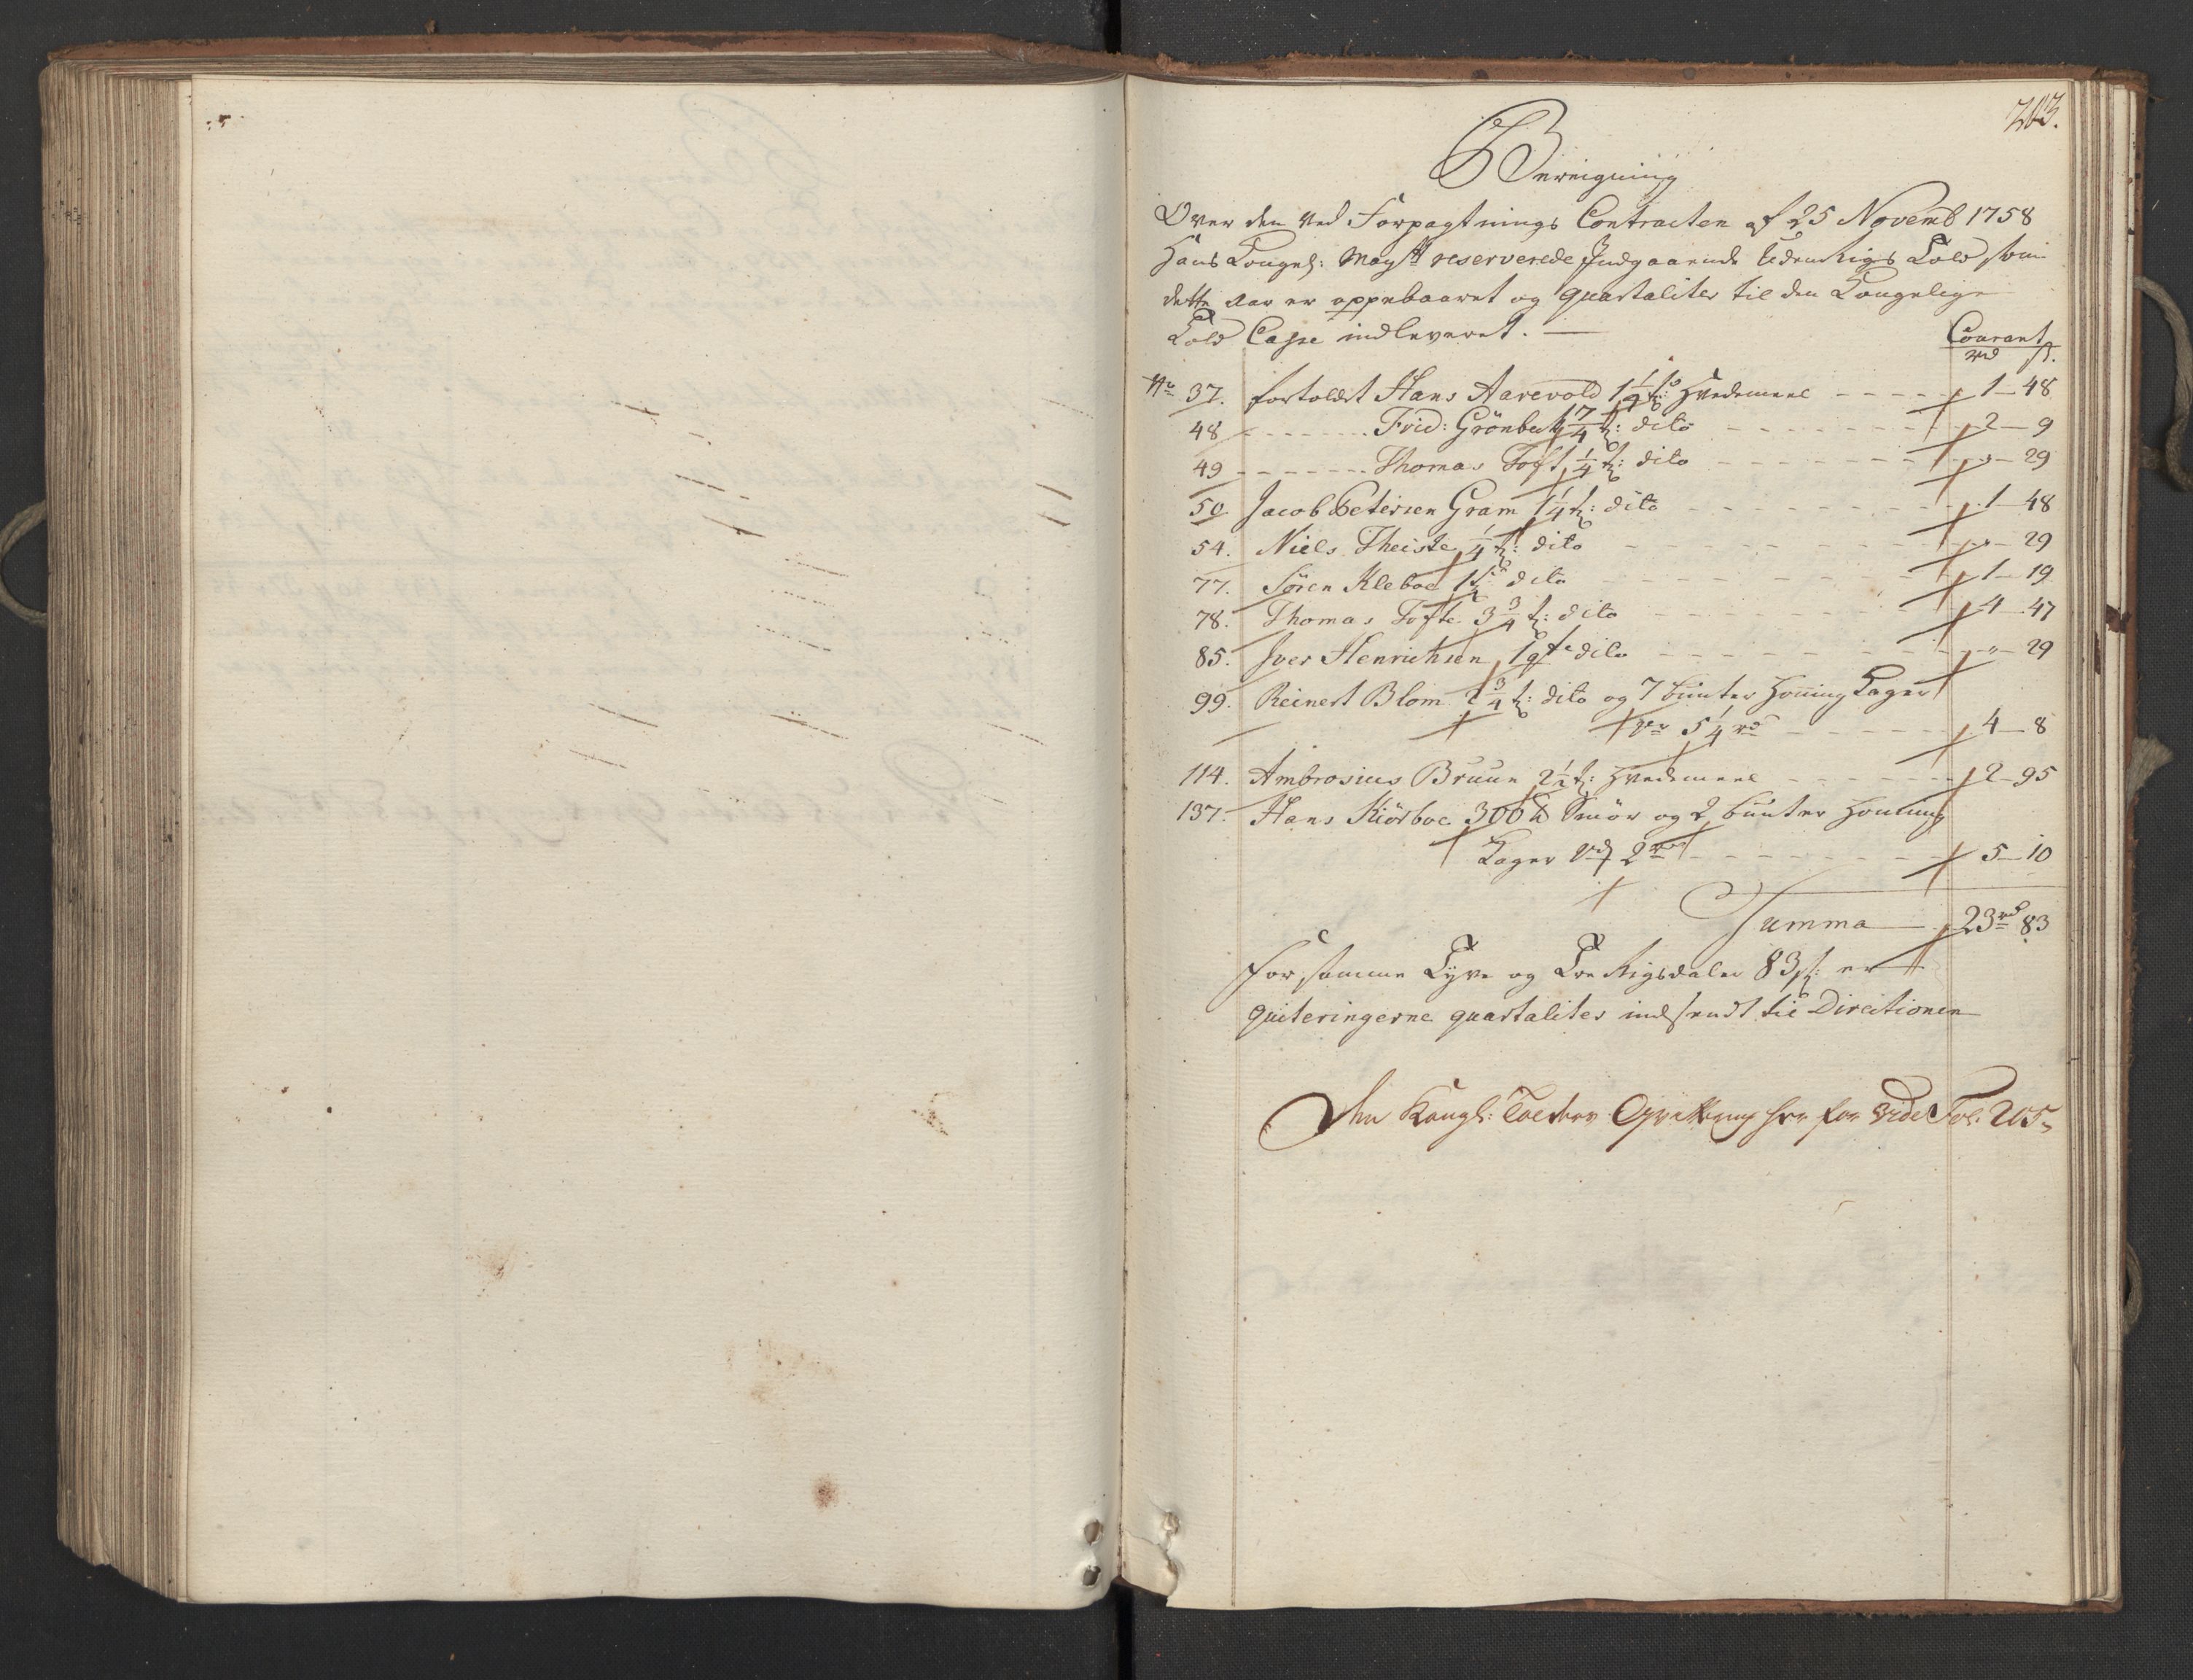 203.
Beregning
Over den ved Forpagtnings Contracten af 25 Novemb 1758
Hans Kongel: Mayst reserverede Indgaaende Udenrigs Told, som
dette aar er oppebaaret og quartaliter til den Kongelige
Told Casse indleveret. —
Courant
rd s.
No 37. fortoldet Hans Aarevold 1 1/4 t: Hvedemeel - - - - 1 — 48
48 - - - - - - - Frid: Grönbech 1 3/4 t: dito - - - - - - - 2 — 9
49 - - - - - - - Thomas Toft 1/4 t: dito - - - - - - - " — 29
50 Jacob Petersen Gram 1 1/4 t: dito - - - - - - - 1 — 48
54. Niels Theiste 1/4 t: dito - - - - - - - " — 29
77. Sören Kleboe 1 t: dito - - - - - - - 1 — 19
78. Thomas Tofte 3 3/4 t: dito - - - - - - - 4 — 47
85. Iver Henrichsen 1 qt dito - - - - - - - " — 29
99. Reinert Blom 2 3/4 t: dito og 7 bunter Honning Kager
5 1/4 rd - - - - - 4 — 8
114. Ambrosius Bruun 2 1/2 t: Hvedemeel - - - - - 2 — 95
137. Hans Kiörboe 300 lb Smör og 2 bunter Honning
Kager 2 rd - - - - - - 5 — 10
Summa — 23 rd 83
For samme Tyve og Tre Rigsdaler 83 s: er
quiteringerne quartaliter indsendt til Directionen
Kongl: Told Cass Qvittering her for vide Fol. 205.